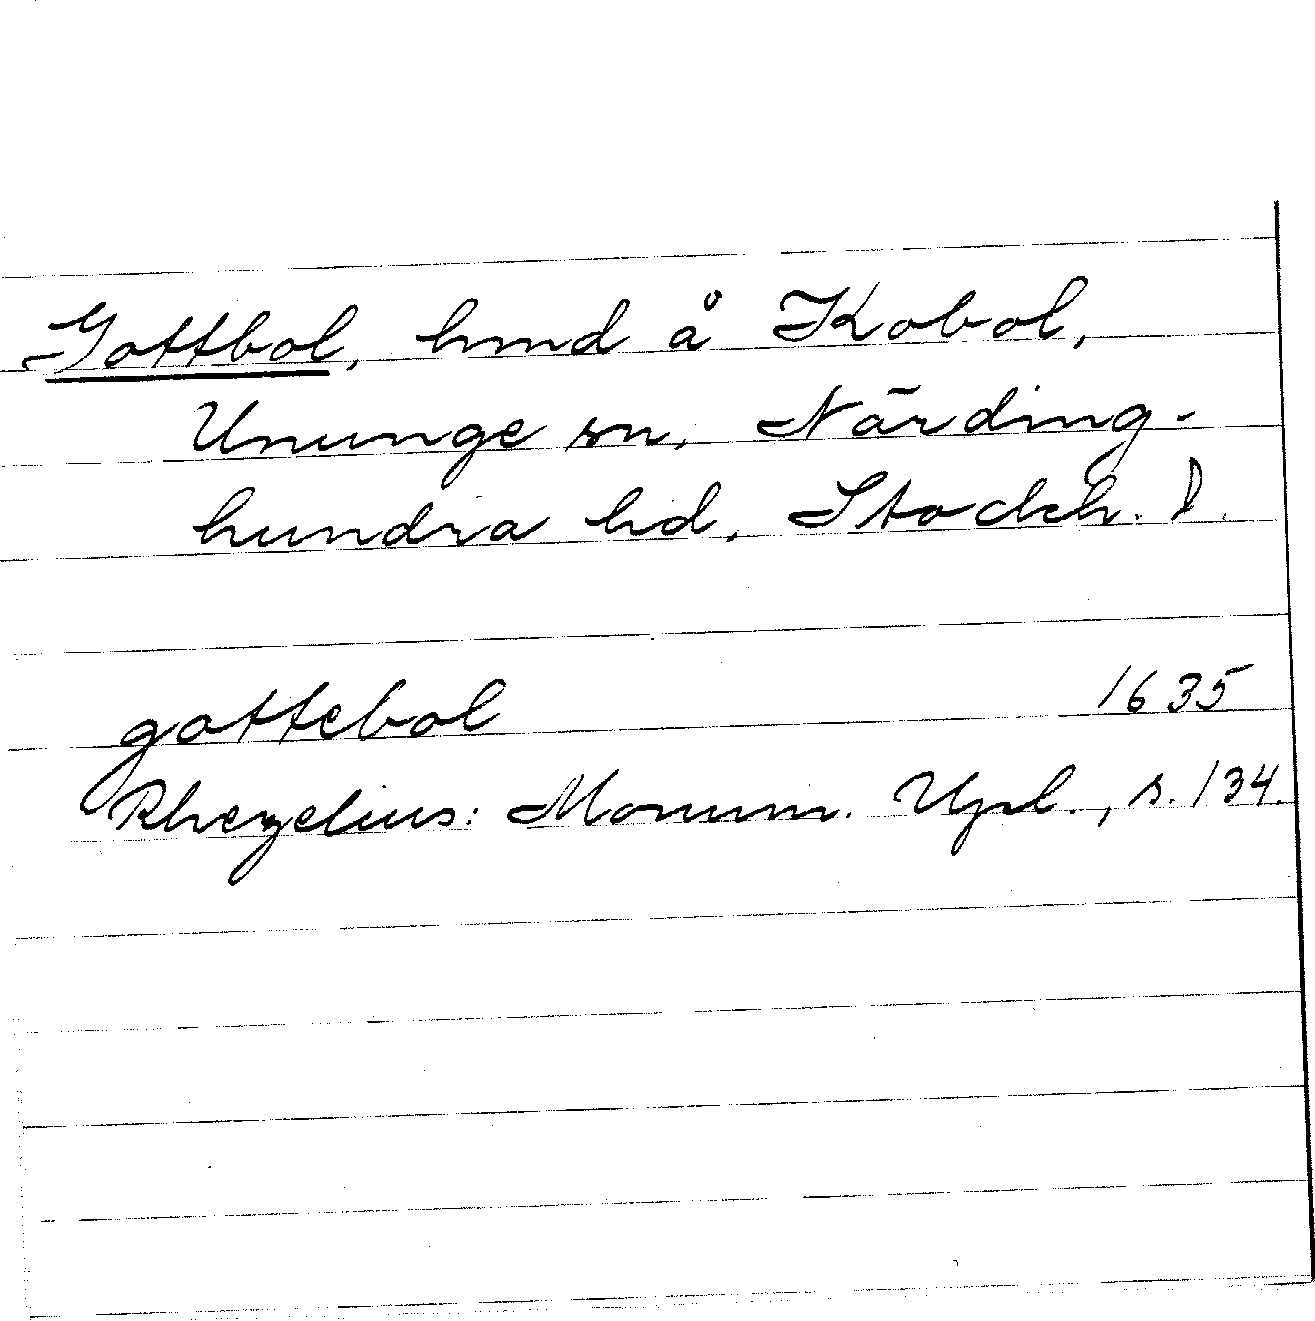 Gottbol, hmd å Kobol,
Ununge sn, Närding-
hundra hd, Stockh. l.
gottebol 1635
Rhezelius: Monum. Upl., s. 134.